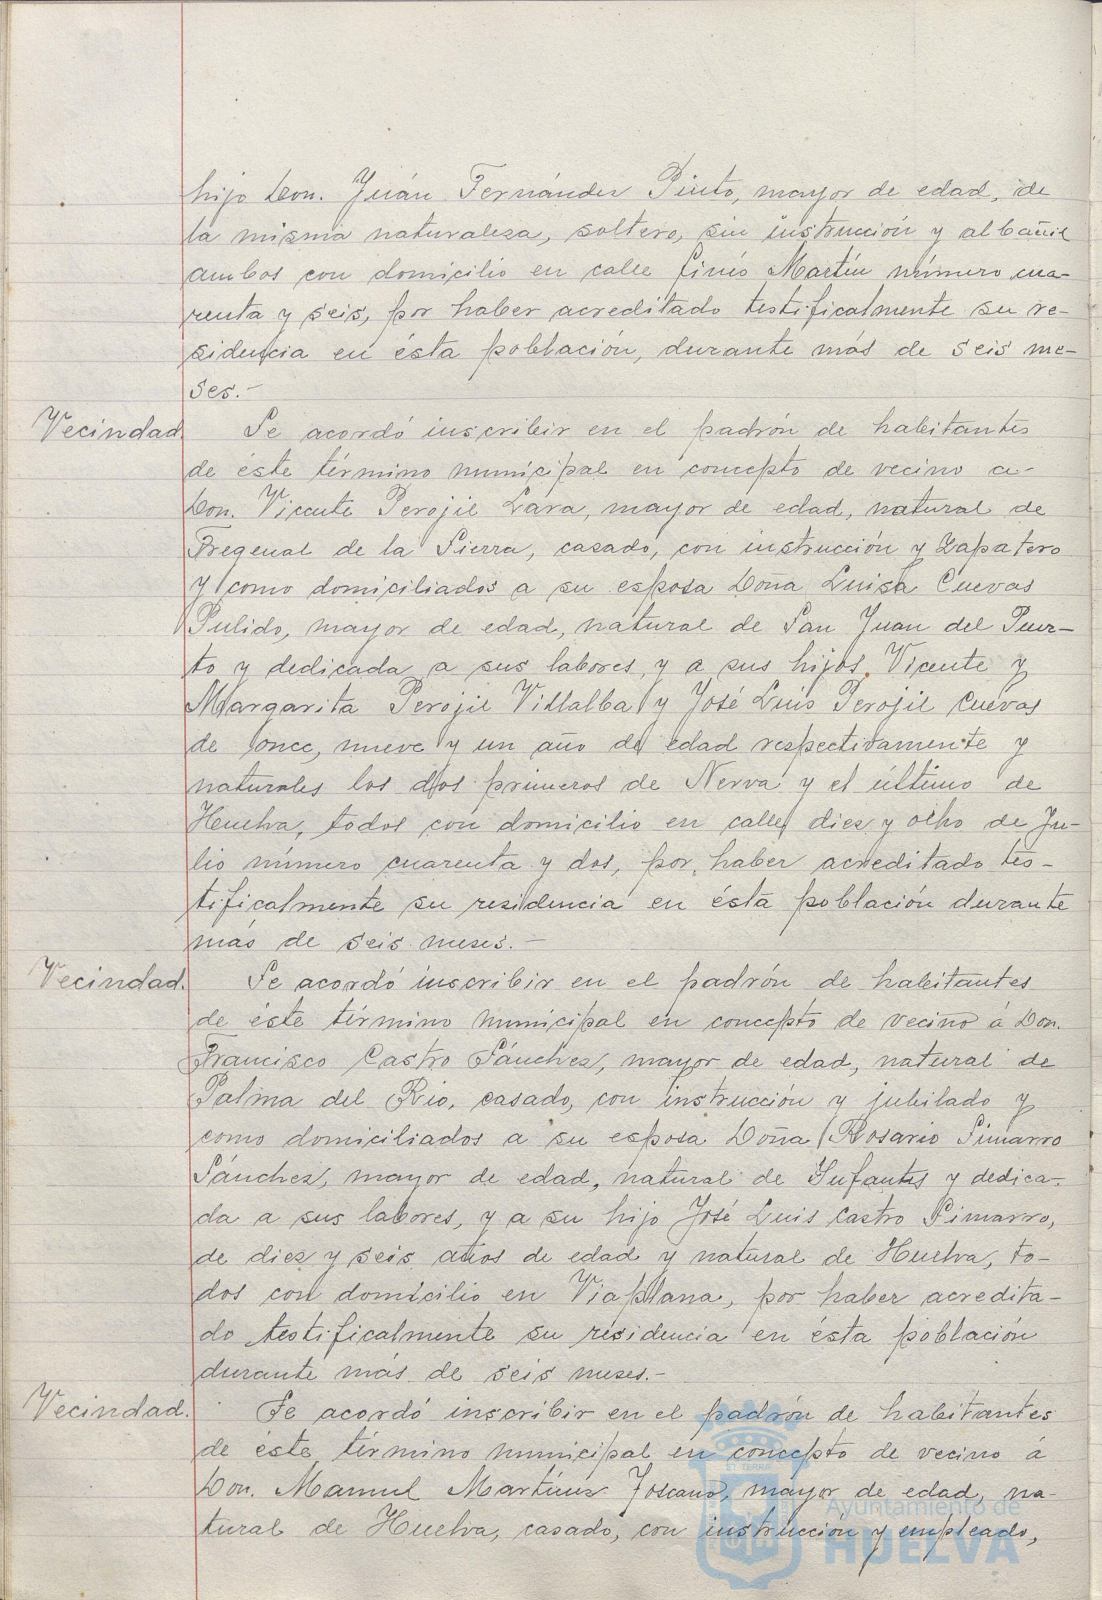 hijo Don. Juán Fernández Pinto, mayor de edad, de
la misma naturaleza, soltero, sin instrucción y albañil
ambos con domicilio en calle Ginés Martín número cua-
renta y seis, por haber acreditado testificalmente su re-
sidencia en ésta población, durante más de seis me-
ses.-
Vecindad. Se acordó inscribir en el padrón de habitantes
de éste término municipal en concepto de vecino a-
Don. Vicente Perojil Lara, mayor de edad, natural de
Fregenal de la Sierra, casado, con instrucción y zapatero
y como domiciliados a su esposa Doña Luisa Cuevas
Pulido, mayor de edad, natural de San Juan del Puer-
to y dedicada a sus labores, y a sus hijos Vicente y
Margarita Perojil Villalba y José Luis Perojil Cuevas
de once, nueve y un año de edad respectivamente y
naturales los dos primeros de Nerva y el último de
Huelva, todos con domicilio en calle diez y ocho de Ju-
lio número cuarenta y dos, por haber acreditado tes-
tificalmente su residencia en ésta población durante
más de seis meses.-
Vecindad. Se acordó inscribir en el padrón de habitantes
de éste término municipal en concepto de vecino á Don.
Francisco Castro Sánchez, mayor de edad, natural de
Palma del Rio, casado, con instrucción y jubilado y
como domiciliados a su esposa Doña Rosario Pimarro
Sánchez, mayor de edad, natural de Infantes y dedica-
da a sus labores, y a su hijo José Luis Castro Pimarro,
de diez y seis años de edad y natural de Huelva, to-
dos con domicilio en Viaplana, por haber acredita-
do testificalmente su residencia en ésta población
durante más de seis meses.-
Vecindad. Se acordó inscribir en el padrón de habitantes
de éste término municipal en concepto de vecino á
Don. Manuel Martínez Toscano, mayor de edad, na-
tural de Huelva, casado, con instrucción y empleado,
Ayuntamiento de
HUELVA